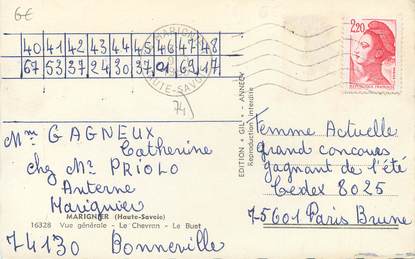 6€
MARIGNIER
HAUTE-SAVOIE
40 41 42 43 44 45 46 47 48
67 53 37 24 30 37 01 69 17
74)
2,20
REPUBLIQUE FRANÇAISE
EDITION "GIL" - ANNECY
Reproduction interdite
Mme GAGNEUX
Catherine
chez Mr PRIOLO
Anterne
Marignier
MARIGNIER (Haute-Savoie)
16328 Vue générale - Le Chevran - Le Buet
74130 Bonneville
Femme Actuelle
Grand concours
gagnant de l'été
Cedex 8025
75601 Paris Brune